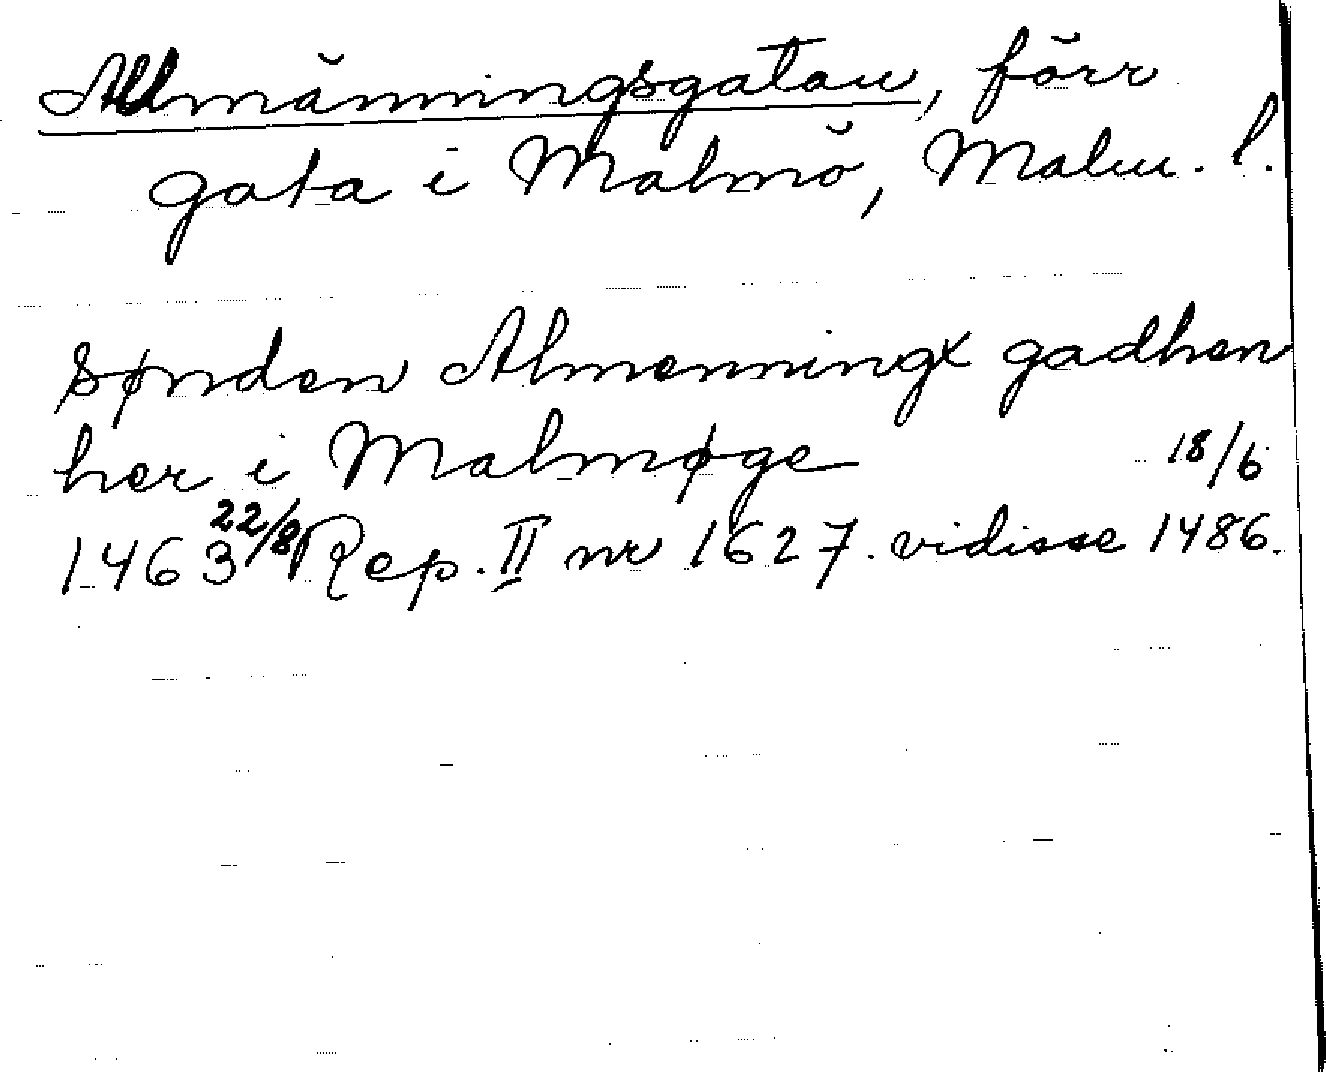 Allmänningsgatan, förr
gata i Malmö, Malm. l.
Sønden Almenningx gadhen
her i Malmøge 18/6
1463 22/8 Rep. II nr 1627. vidisse 1486.